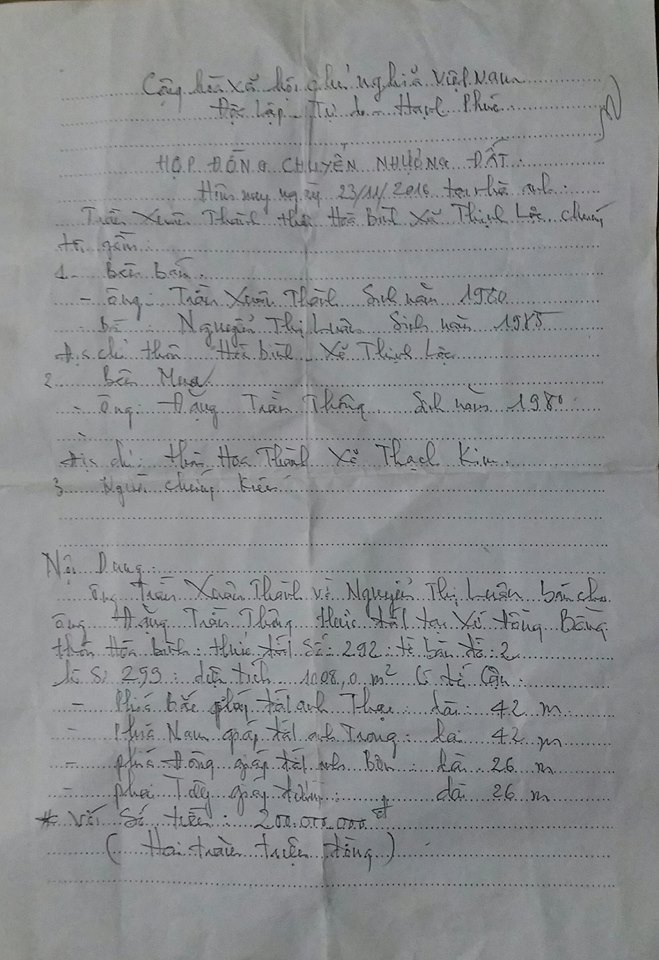 Cộng hòa xã hội chủ nghĩa Việt Nam
Độc lập - Tự do - Hạnh Phúc
HỢP ĐỒNG CHUYỂN NHƯỢNG ĐẤT
Hôm nay ngày 23/11/2016 tại nhà anh
Trần Xuân Thành thôn Hoà bình Xã Thịnh Lộc chúng
tôi gồm:
1- Bên bán:
- ông: Trần Xuân Thành Sinh năm 1980
bà: Nguyễn Thị Luận Sinh năm 1985
địa chỉ thôn Hoà bình - Xã Thịnh Lộc
2. Bên Mua
- ông: Đặng Trần Thông Sinh năm 1980
địa chỉ: thôn Hoa Thành Xã Thạch Kim
3. Người chứng kiến
Nội Dung:
ông Trần Xuân Thành và Nguyễn Thị Luận bán cho
ông Đặng Trần Thông thửa đất tại Xứ đồng Bằng
thôn Hòa bình: thửa đất số: 292: tờ bản đồ: 2
lô Số 299: diện tích 1008,0 m² Có tứ Cận:
- Phía bắc giáp đất anh dài: 42 m
- Phía Nam giáp đất anh Trong: dài 42 m
- phía Đông giáp đất anh Bốn: dài 26 m
- phía Tây giáp đường: dài 26 m
* Với Số tiền: 200.000.000đ
(Hai trăm triệu đồng)